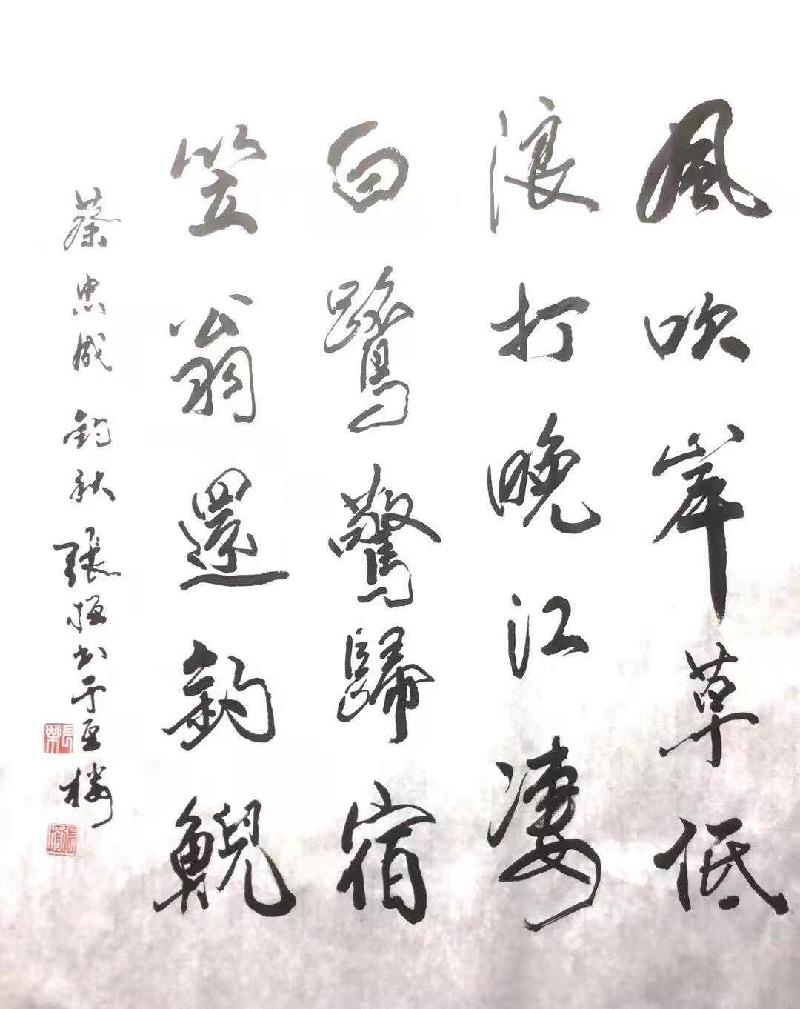 風吹岸草低
浪打晚江凄
白鷺驚歸宿
笠翁還釣鯢
蔡忠成 釣秋 張 書于 樓